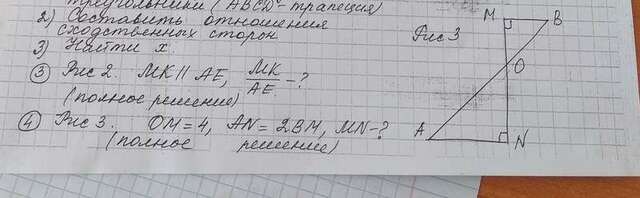 треугольники (ABCD - трапеция)
2) Составить отношения
сходственных сторон
3) Найти x
③ Рис 2. MK || AE, MK/AE - ?
(полное решение)
④ Рис 3. OM = 4, AN = 2BM, MN - ?
(полное решение)
Рис 3
M
B
O
A
N